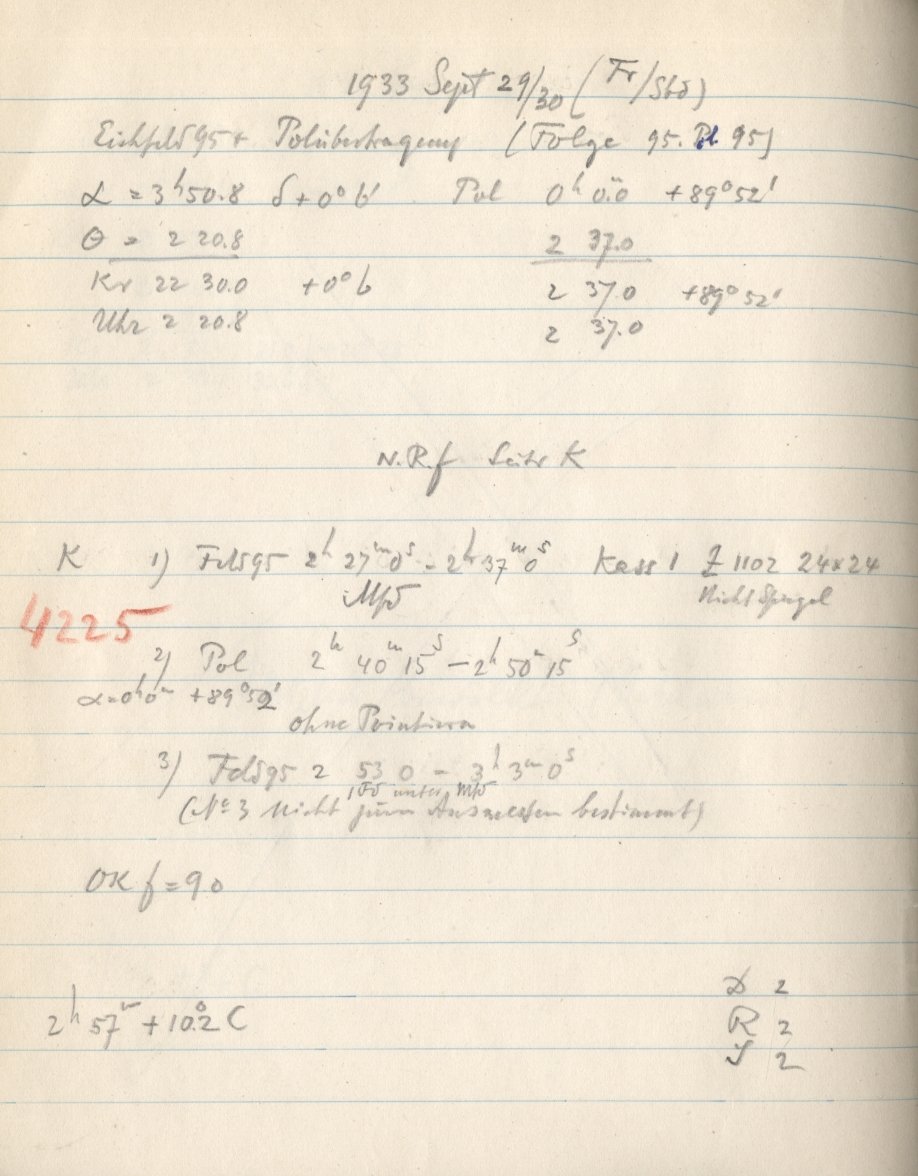 1933 Sept 29/30 (Fr/Sbd)
Eichfeld 95 + Polübertragung (Folge 95. Pl 95)
α = 3h 50.8 δ + 0° 6' Pol 0h 0.0 + 89° 52'
θ = 2 20.8 2 37.0
Kr 22 30.0 + 0° 6 2 37.0 + 89° 52'
Uhr 2 20.8 2 37.0
N.R.f K
K 1) Feld 95 2h 27m 0s - 2h 37m 0s Kass 1 Z 1102 24x24
Mfd Nicht Spiegel
4225
2) Pol 2h 40m 15s - 2h 50m 15s
α=0h0m +89°52'
ohne Pointieren
3) Feld 95 2 53 0 - 3h 3m 0s
unter Mfd
(No 3 nicht zum Ausmessen bestimmt)
OK f = 90
D 2
2h 57m + 10.2° C
R 2
J 2